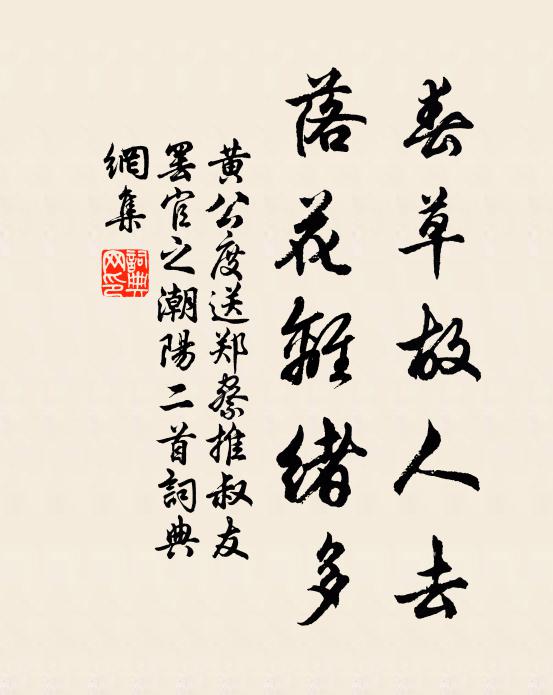 春草故人去
落花離緒多
黄公度送郑察推叔友
罢官之潮陽二首詞典
網集
詞典網印